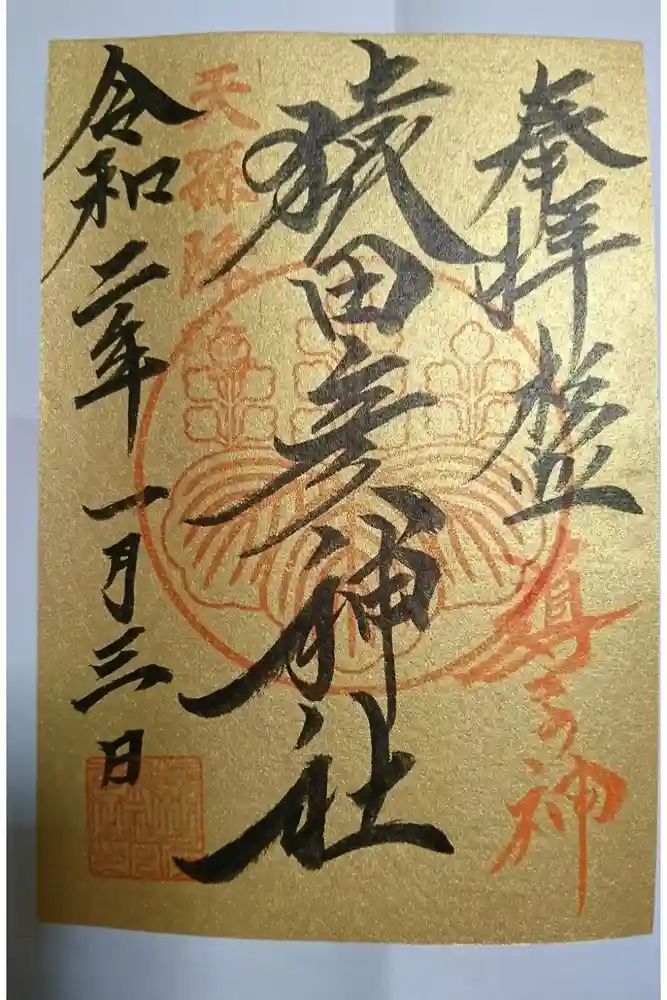 奉拝
導きの神
猿田彦神社
天孫降臨
令和二年一月三日